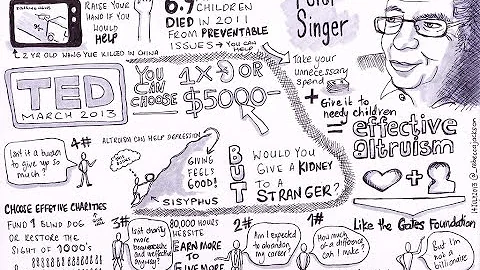 RAISE YOUR
HAND IF YOU
WOULD
HELP
2 YR OLD WANG YUE KILLED IN CHINA
6.9 CHILDREN
DIED IN 2011
FROM PREVENTABLE
ISSUES → YOU CAN
HELP
Peter
Singer
TED
MARCH 2013
YOU
CAN
CHOOSE
1X OR
$5000-
Take your
unnecessary
spend
+ Give it to
needy children
= effective
altruism
+
4#
Isn't it a burden
to give up so
much?
ALTRUISM CAN HELP DEPRESSION
SISYPHUS
GIVING
FEELS
GOOD!
BUT
WOULD YOU
GIVE A KIDNEY
TO A
STRANGER?
CHOOSE EFFECTIVE CHARITIES
FUND 1 BLIND DOG
OR RESTORE THE
SIGHT OF 1000's
3#
Isn't charity
more
bureaucratic and
ineffective
anyway?
80,000 HOURS
WEBSITE
EARN MORE
TO
GIVE MORE
2#
Am I expected
to abandon
my career?
1#
How much
of a difference
can I make?
Like the Gates Foundation
But I'm
not a
billionaire